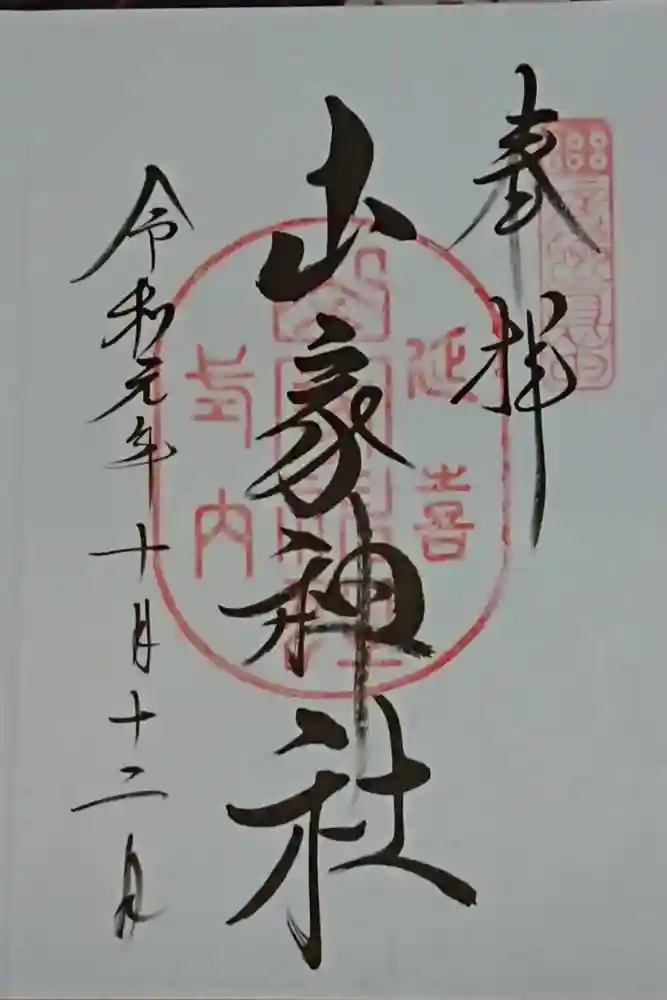 奉拝
延喜
山家神社
式内
令和元年十月十二日